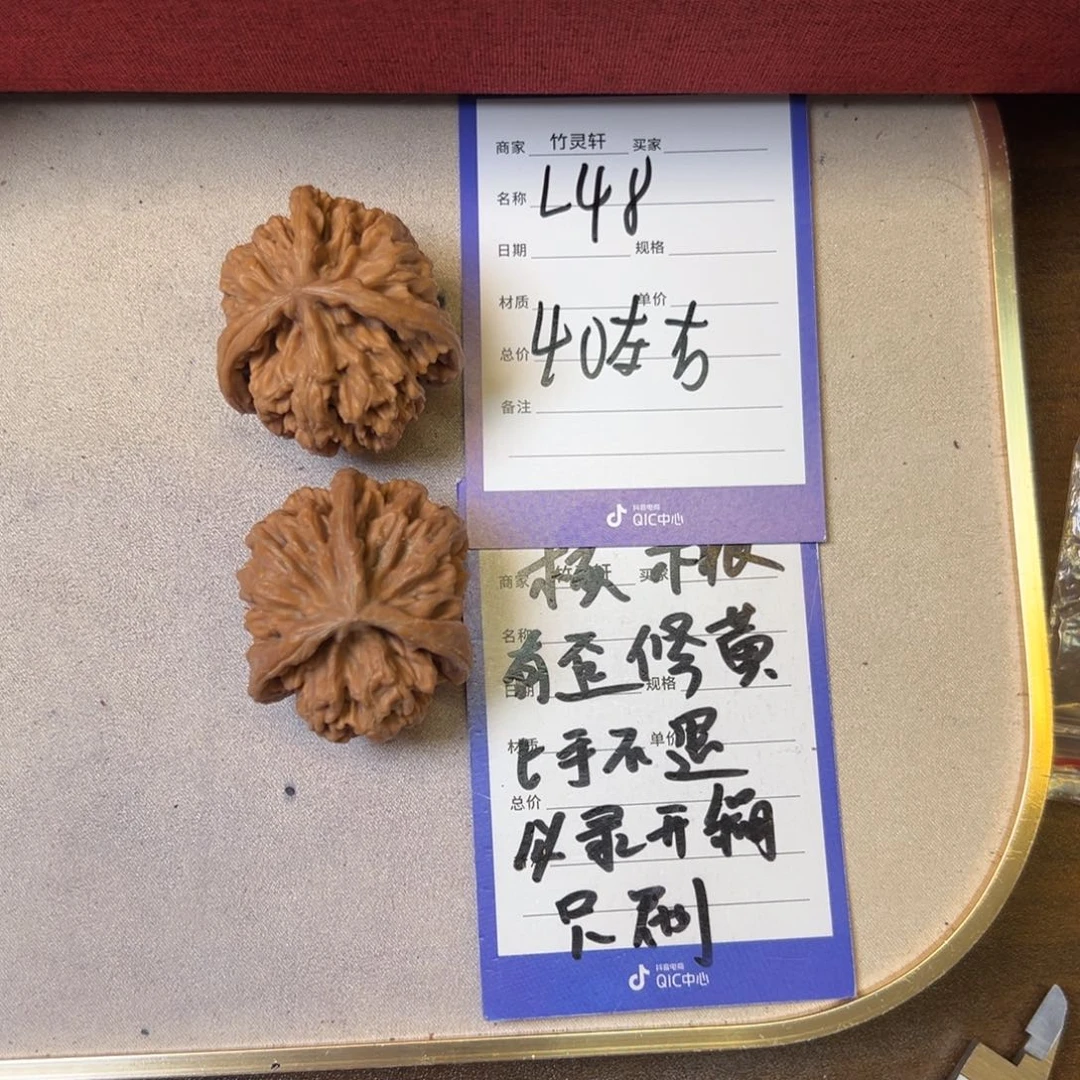 商家 竹灵轩 买家
名称 L48
日期 规格
材质 单价
总价 40左右
备注
抖音电商
QIC中心
核 不报
商家 竹灵轩 买家
名称
有歪修黄
日期 规格
上手不退
材质 单价
总价
必录开箱
只刷
抖音电商
QIC中心